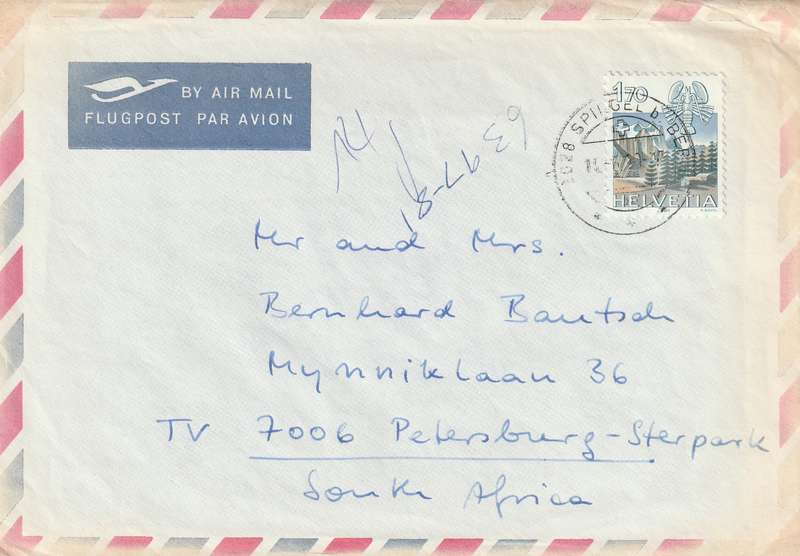 BY AIR MAIL
FLUGPOST PAR AVION
1.70
SPIEGEL b. BE
HELVETIA
Mr and Mrs.
Bernhard Bautsch
Mynniklaan 36
TV 7006 Petersburg-Sterpark
South Africa